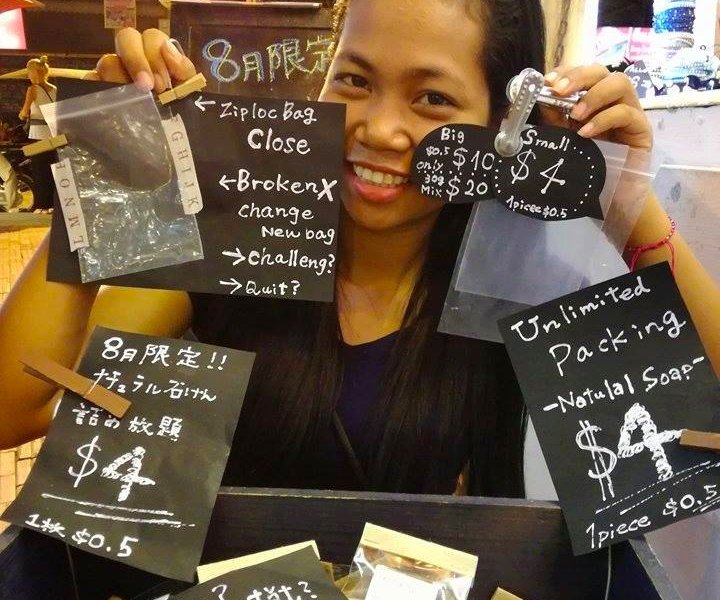 8月限定
← Ziploc Bag
Close
←Broken X
change
New bag
→Challeng?
→Quit?
GHIJK
Big
$0.5 $10
only
30g
Mix $20
Small
$4
1piece $0.5
8月限定!!
ナチュラル石けん
詰め放題
$4
1枚 $0.5
Unlimited
Packing
-Natulal Soap-
$4
1piece $0.5